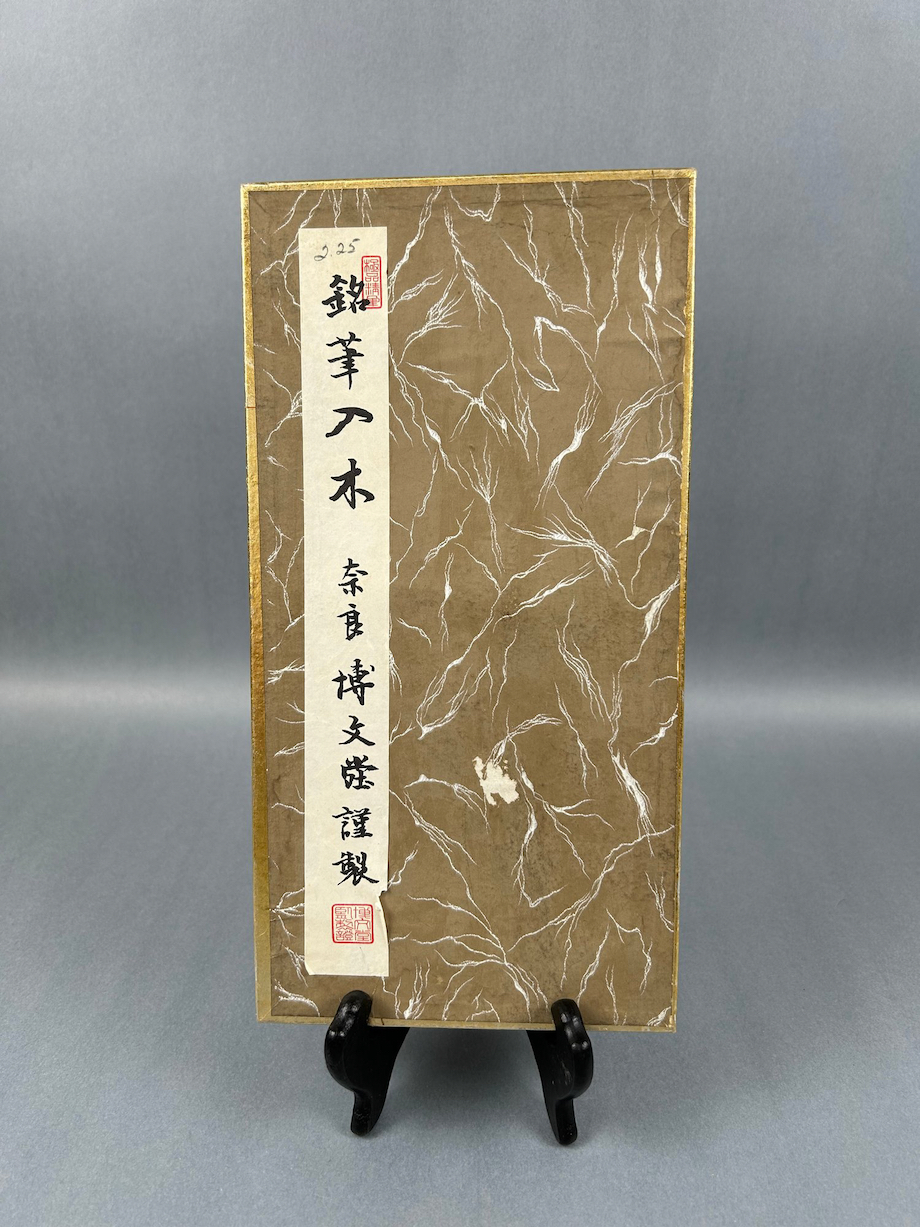 2.25
銘筆入木
奈良博文堂謹製